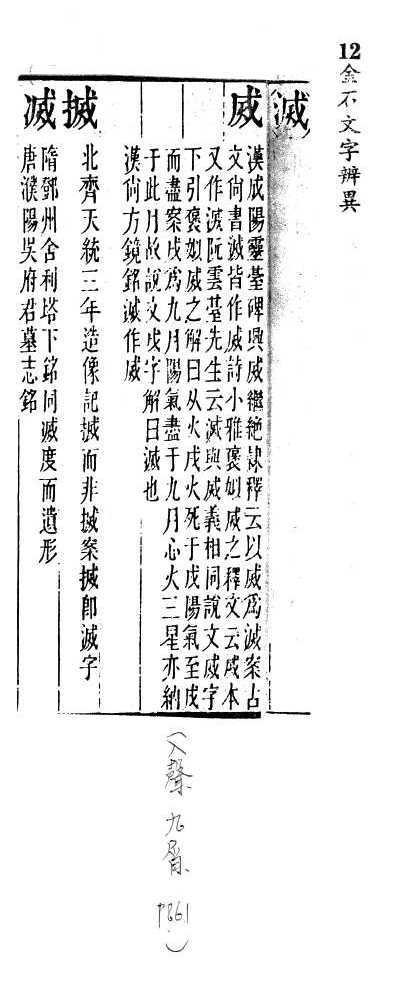 12金石文字辨異
(滅)
烕
漢成陽靈臺碑興烕繼絶隷釋云以烕爲滅案古
文尙書滅皆作烕詩小雅褒姒烕之釋文云烕本
又作滅阮雲臺先生云滅與烕義相同說文烕字
下引褒姒烕之解曰从火戌火死于戌陽氣至戌
而盡案戌爲九月陽氣盡于九月心火三星亦納
于此月故說文戌字解曰滅也
漢尙方鏡銘滅作烕
搣
北齊天統三年造像記搣而非搣案搣卽滅字
㓕
隋鄧州舍利塔下銘同㓕度而遺形
唐濮陽吳府君墓志銘
(入聲 九屑 P861)